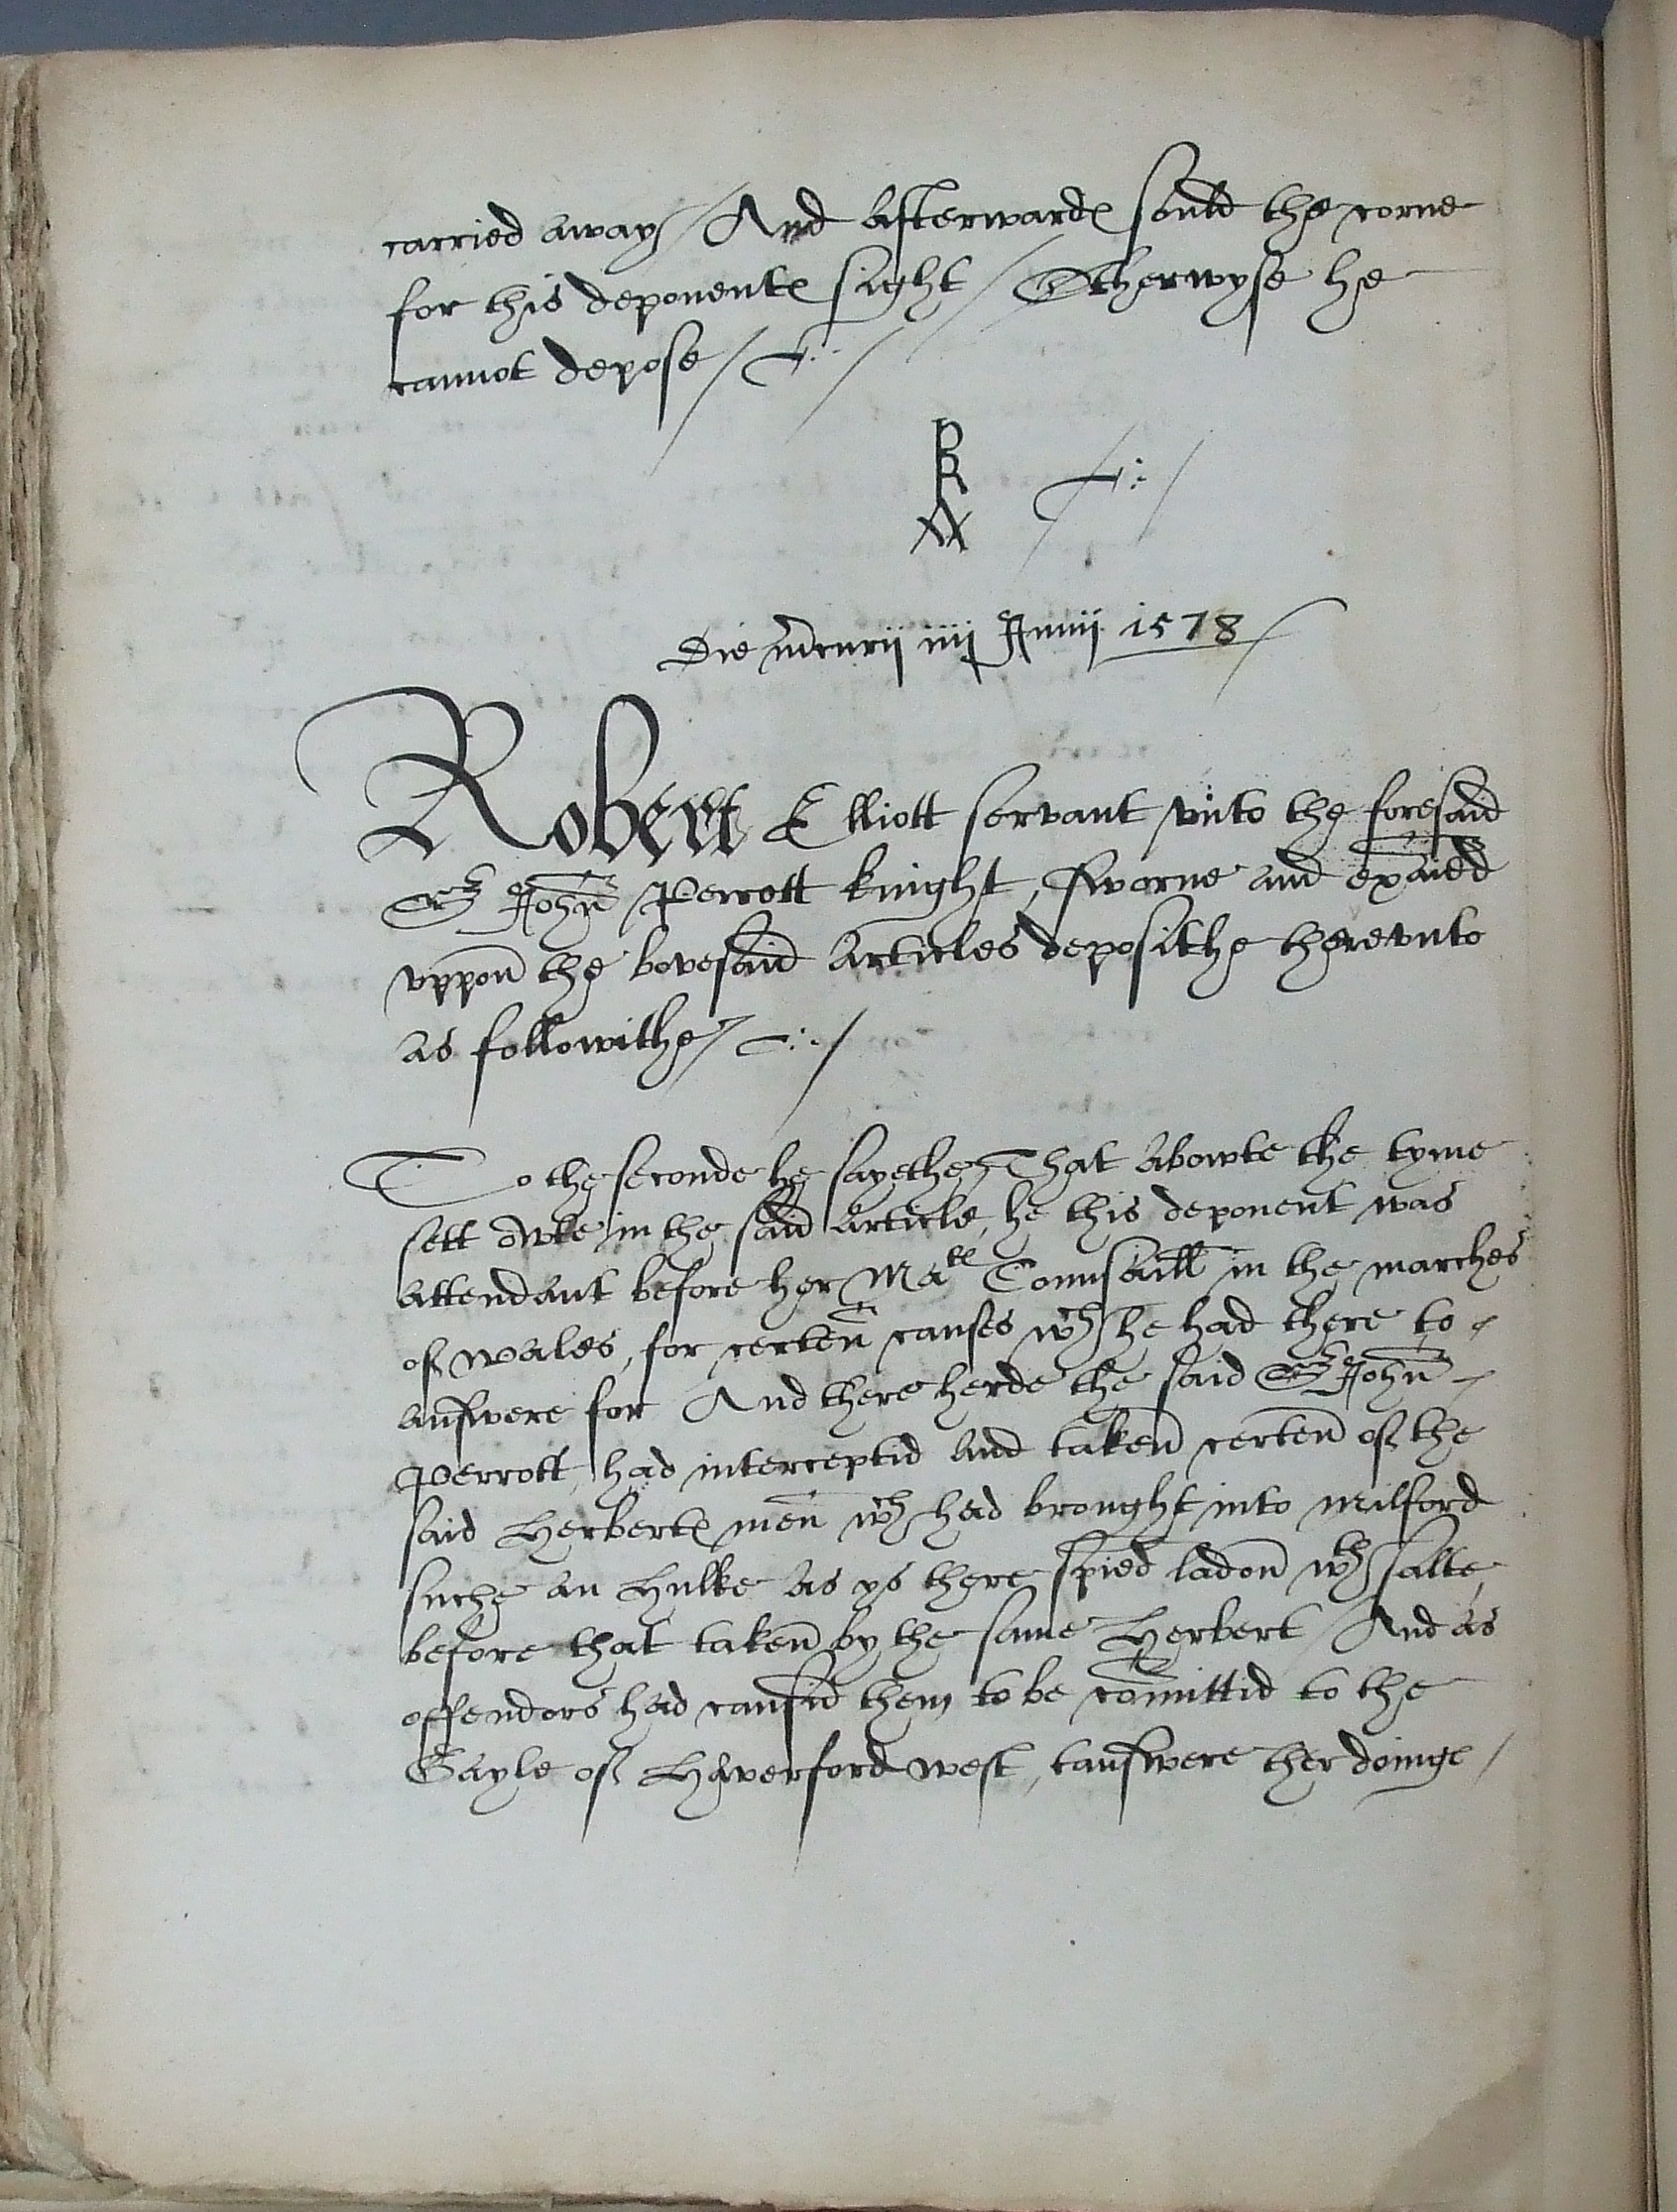 carried away / And afterwardes sould the corne
for this deponentes sight / Otherwyse he
cannot depose /
Die Mercurii iiij Junij 1578 /
Robert Elliott servant vnto the foresaid
Sr John Perrott knight, sworne and examied
vppon the bovesaid Articles deposithe therevnto
as followithe /
To the seconde he sayethe / That abowte the tyme
sett owte in the said Article, he this deponent was
attendant before her Mates Counsaill in the marches
of wales, for certen causes wch he had there to
answere for And there herde the said Sr John
Perrott, had interceptid and taken certen of the
said Herbertes men wch had brought into Milford
suche an Hulke as ys there spied ladon wth salte,
before that taken by the same Herbert / And as
offendors had causid them to be committid to the
Gayle of Haverford west, tanswere ther doinges /